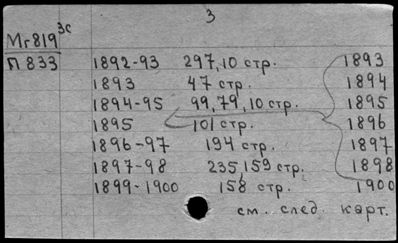 3
Мг819 3с
П 833 1892-93 297,10 стр. 1893
1893 47 стр. 1894
1894-95 99,79,10 стр. 1895
1895 101 стр. 1896
1896-97 194 стр. 1897
1897-98 235,159 стр. 1898
1899-1900 158 стр. 1900
см. след. карт.